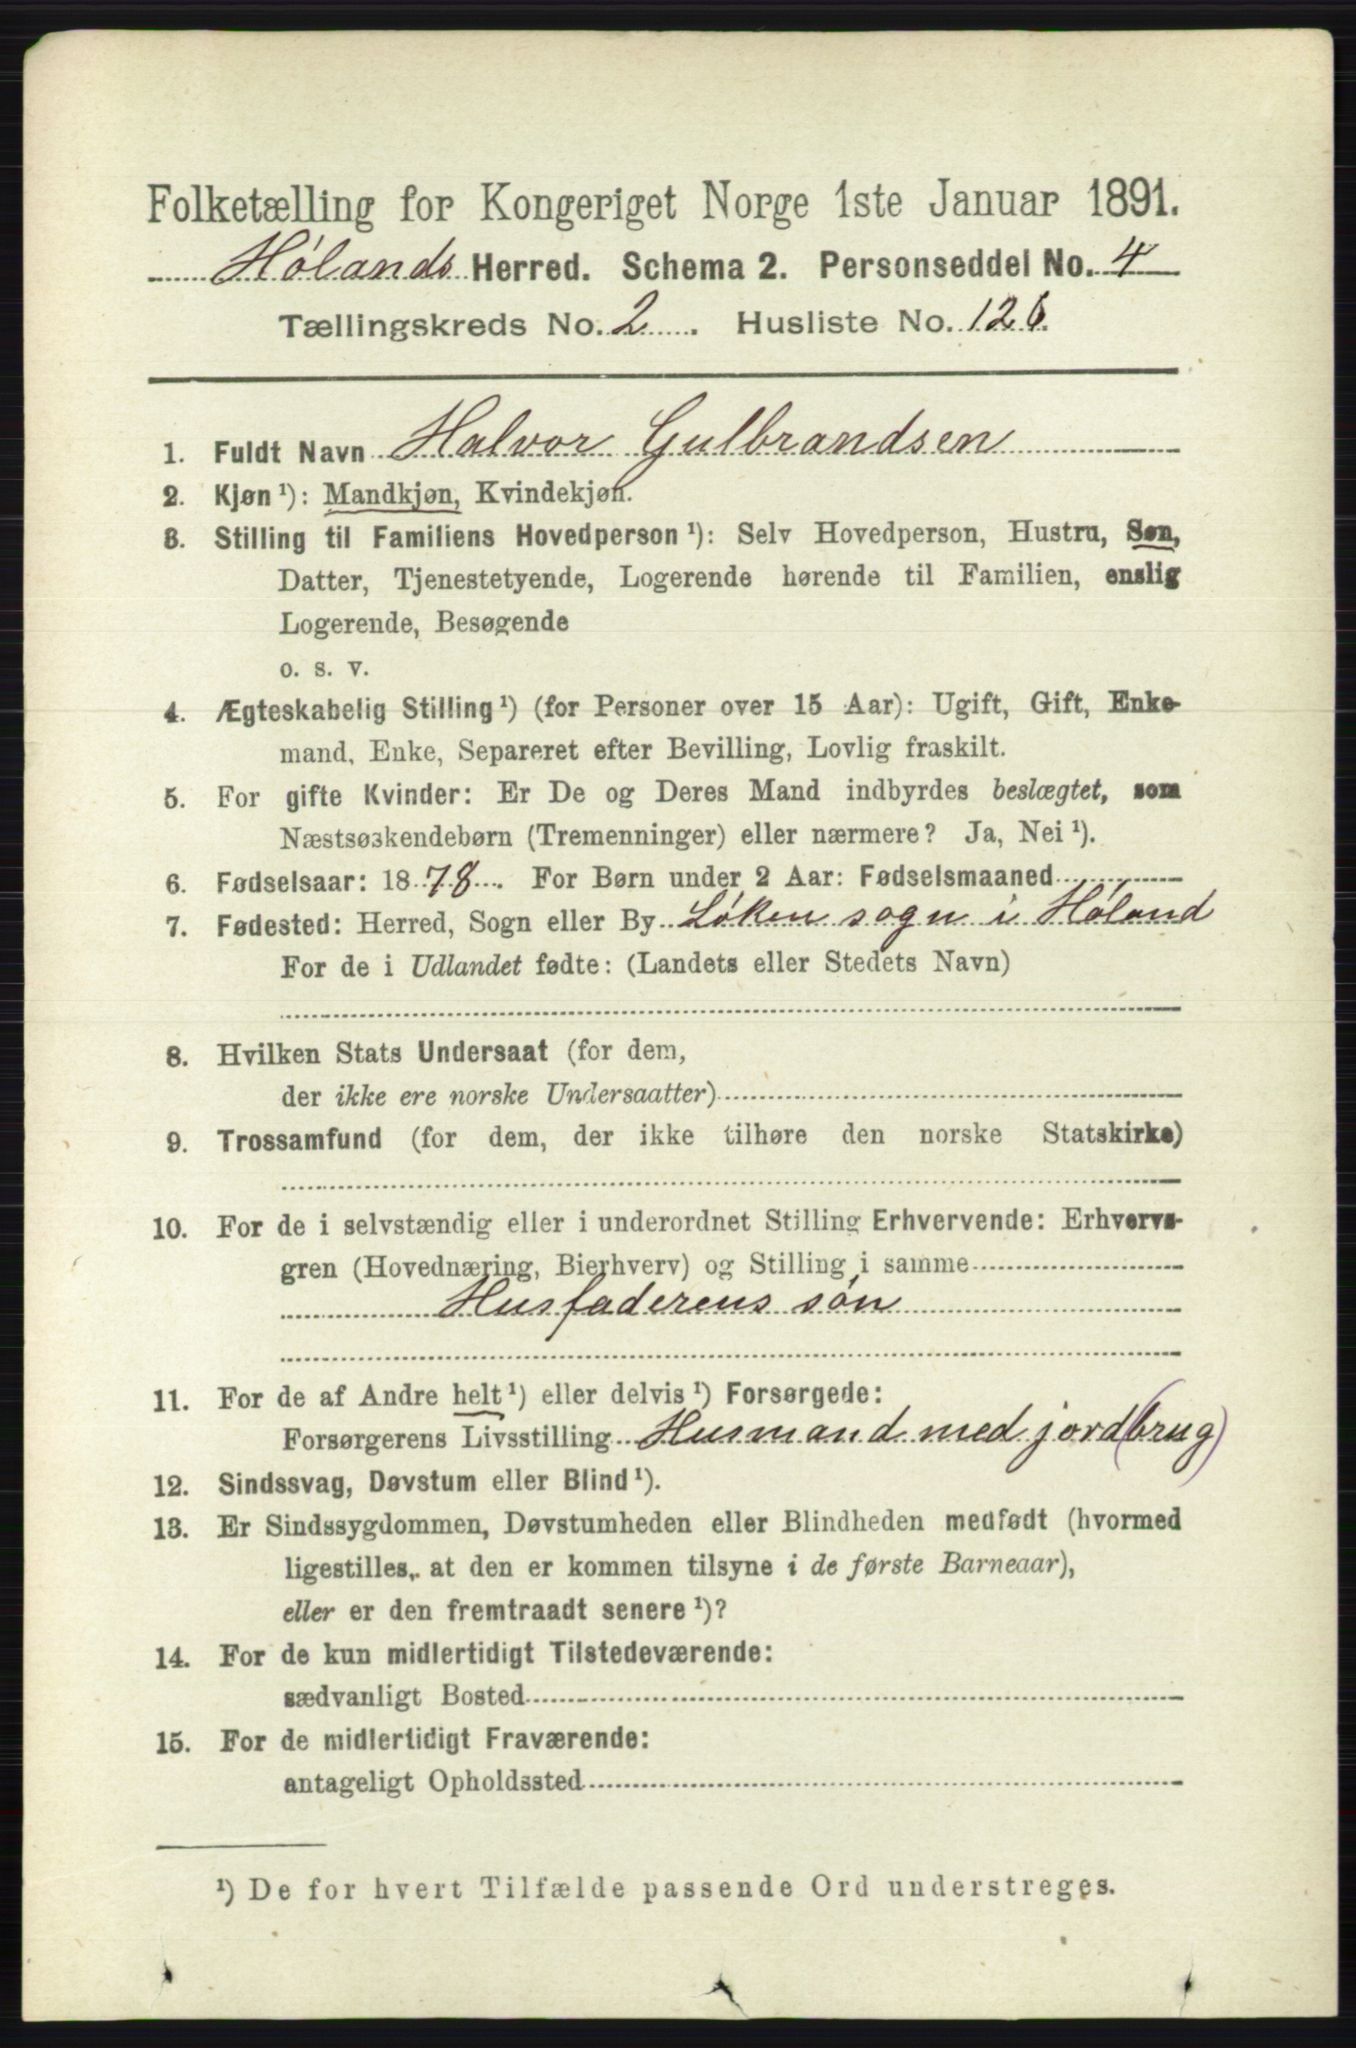 Folketælling for Kongeriget Norge 1ste Januar 1891.
Hólands Herred. Schema 2. Personseddel No. 4
Tællingskreds No. 2. Husliste No. 126.
1. Fuldt Navn Halvor Gulbrandsen
2. Kjøn ¹): Mandkjøn, Kvindekjøn.
3. Stilling til Familiens Hovedperson ¹): Selv Hovedperson, Hustru, Søn,
Datter, Tjenestetyende, Logerende hørende til Familien, enslig
Logerende, Besøgende
o. s. v.
4. Ægteskabelig Stilling ¹) (for Personer over 15 Aar): Ugift, Gift, Enke-
mand, Enke, Separeret efter Bevilling, Lovlig fraskilt.
5. For gifte Kvinder: Er De og Deres Mand indbyrdes beslægtet, som
Næstsøskendebørn (Tremenninger) eller nærmere? Ja, Nei ¹).
6. Fødselsaar: 1878. For Børn under 2 Aar: Fødselsmaaned
7. Fødested: Herred, Sogn eller By Lóken sogn i Hóland
For de i Udlandet fødte: (Landets eller Stedets Navn)
8. Hvilken Stats Undersaat (for dem,
der ikke ere norske Undersaatter)
9. Trossamfund (for dem, der ikke tilhøre den norske Statskirke)
10. For de i selvstændig eller i underordnet Stilling Erhvervende: Erhvervs-
gren (Hovednæring, Bierhverv) og Stilling i samme
Husfaderens són
11. For de af Andre helt ¹) eller delvis ¹) Forsørgede:
Forsørgerens Livsstilling Husmand med jord(brug)
12. Sindssvag, Døvstum eller Blind ¹).
13. Er Sindssygdommen, Døvstumheden eller Blindheden medfødt (hvormed
ligestilles, at den er kommen tilsyne i de første Barneaar),
eller er den fremtraadt senere ¹)?
14. For de kun midlertidigt Tilstedeværende:
sædvanligt Bosted
15. For de midlertidigt Fraværende:
antageligt Opholdssted
¹) De for hvert Tilfælde passende Ord understreges.